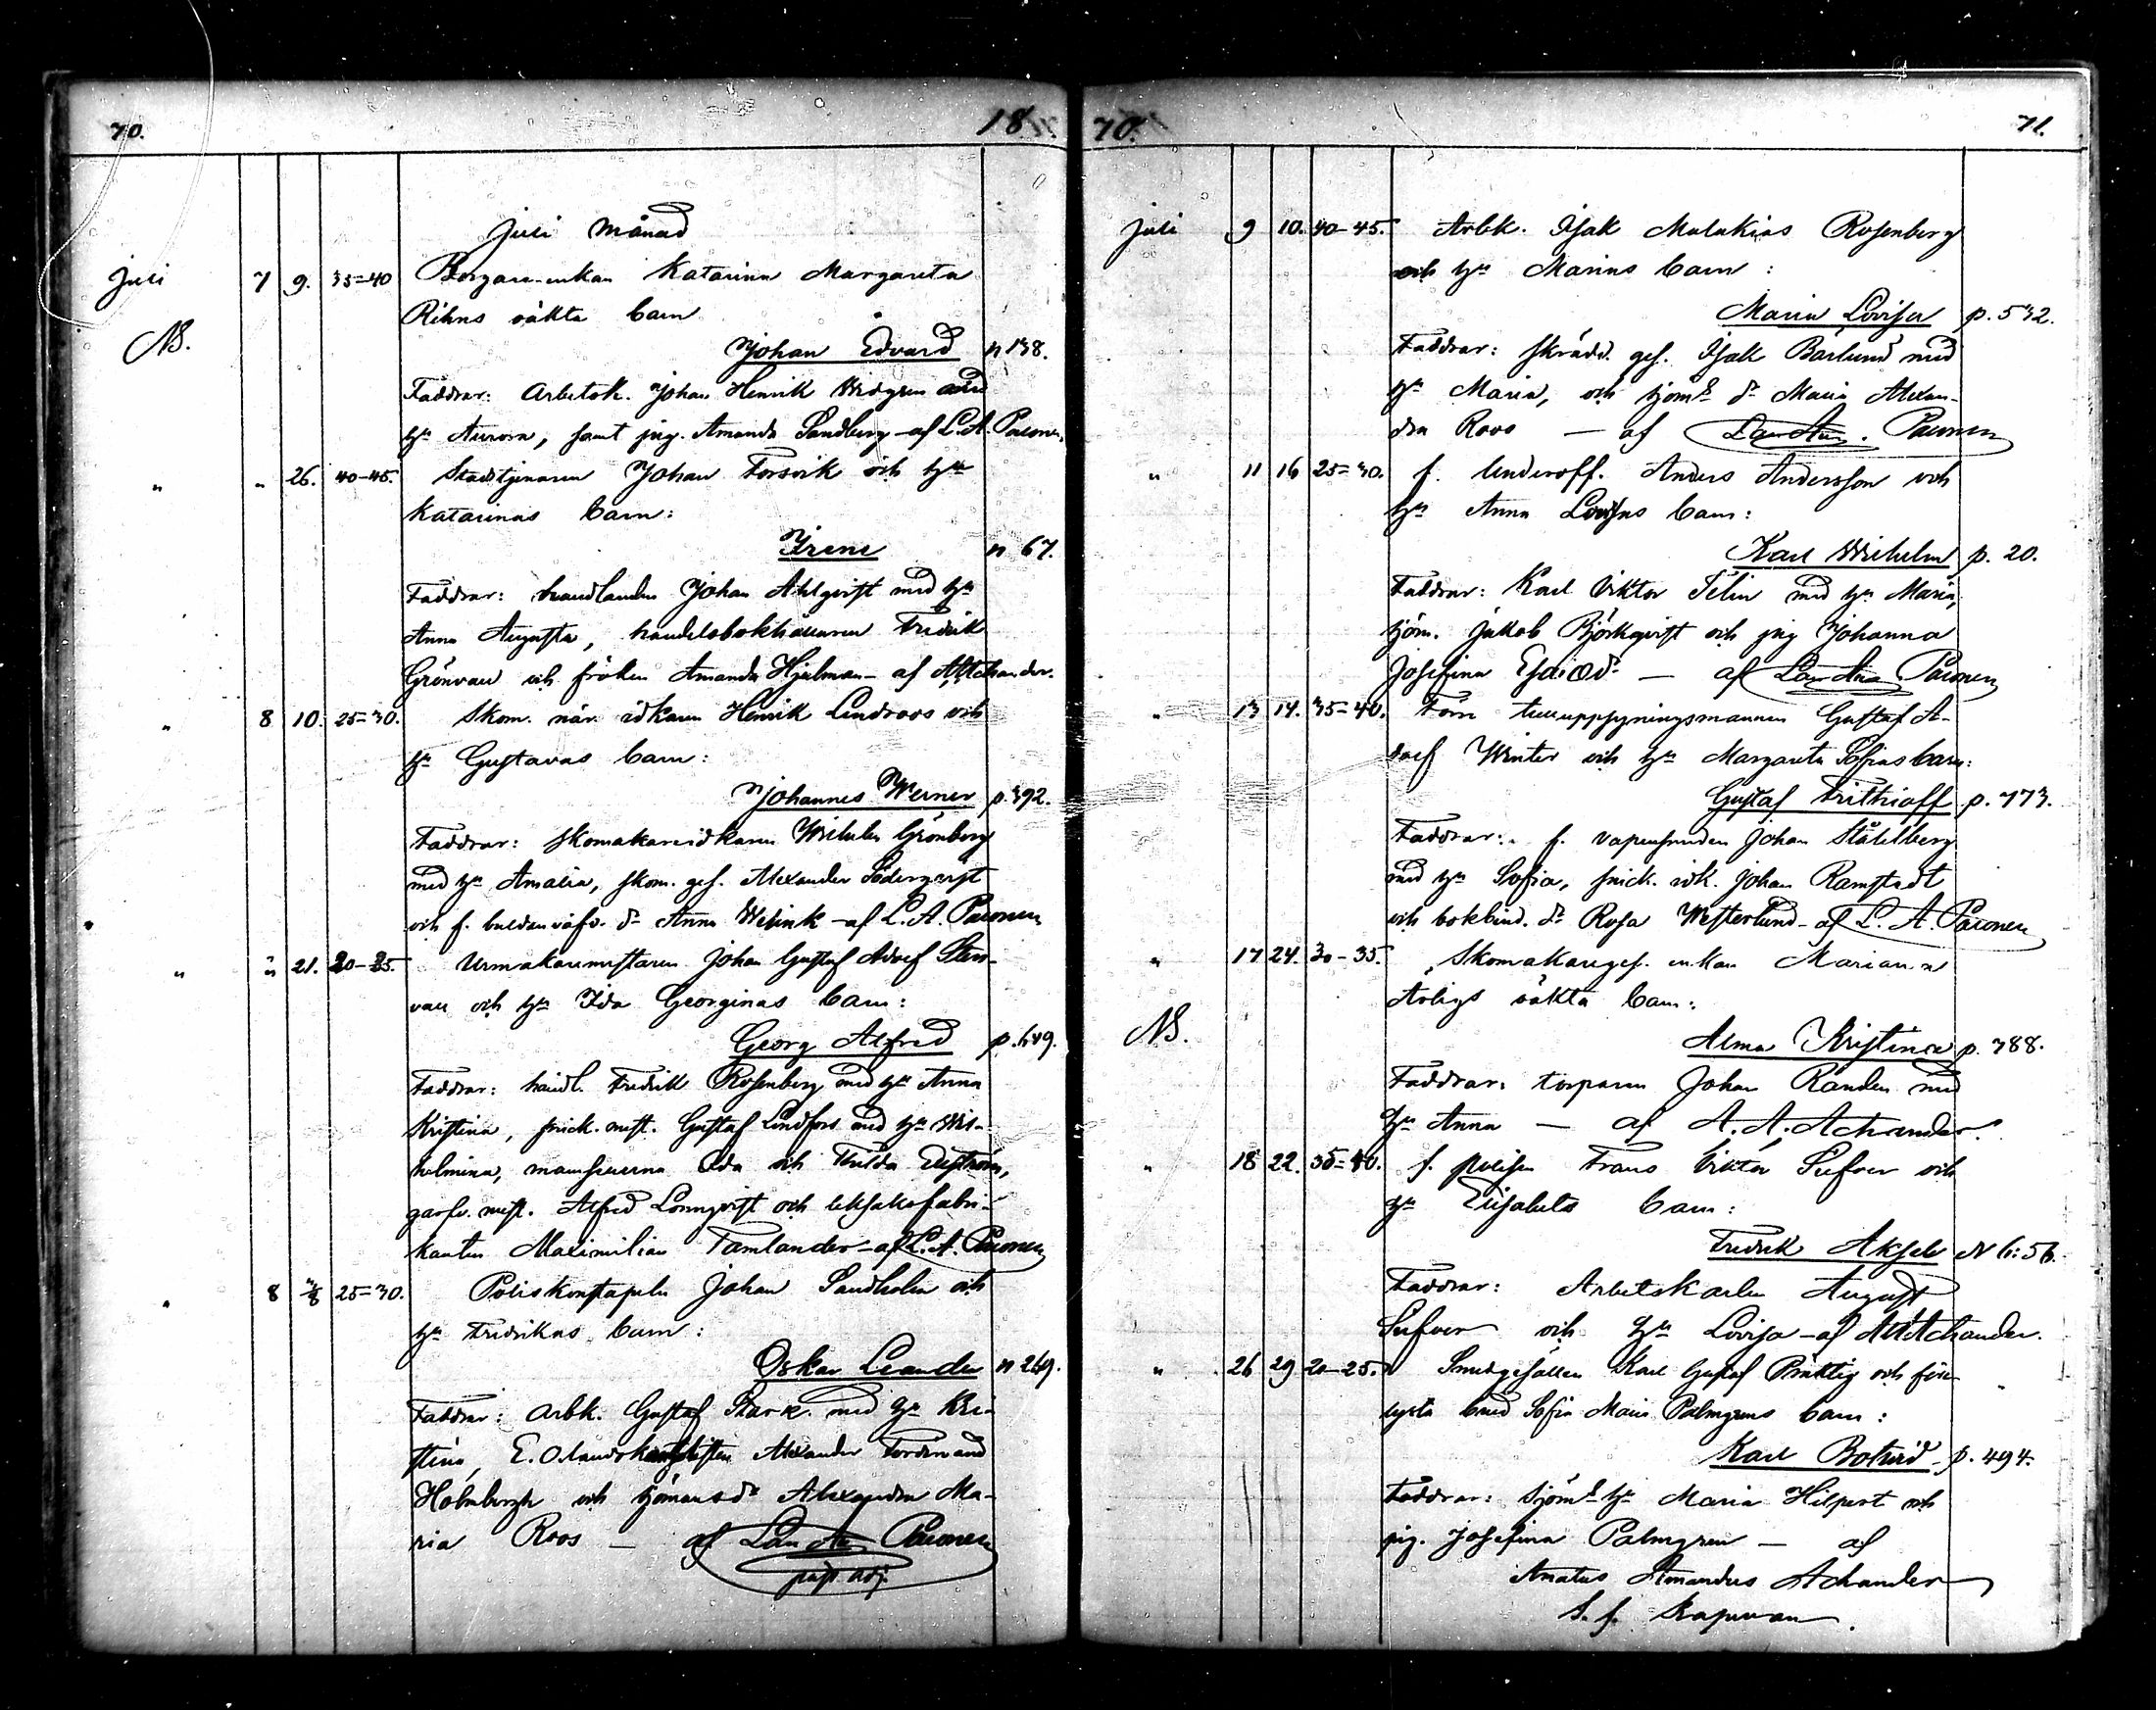 70. 18
Juli månad
Juli 7 9. 35=40 Borgare-enkan Katarina Margareta
Rihns oäkta barn
NB.
Johan Edvard n 138.
Faddrar: Arbetsk. Johan Henrik Widgren med
hu Aurora, samt pig. Amanda Sandberg – af L. A. Paconen
" " 26. 40–45. Stadstjenaren Johan Forsvik och hu
Katarinas barn:
Irene n 67.
Faddrar: handlanden Johan Ahlqvist med hu
Anna Augusta, handelsbokhållaren Fredrik
Grönvall och fröken Amanda Hjelman – af A. A. Achander.
" 8 10. 25=30. Skom. när. idkaren Henrik Lindroos och
hu Gustavas barn:
Johannes Werner p. 392.
Faddrar: skomakareidkaren Wilhelm Grönberg
med hu Amalia, skom. ges. Alexander Söderqvist
och f. dr Anna – af L. A. Paconen
" " 21. 20–25. Urmakaremästaren Johan Gustaf Adolf Sten-
vall och hu Ida Georginas barn:
Georg Alfred p. 649.
Faddrar: handl. Fredrik Rosenberg med hu Anna
Kristina, snick. mäst. Gustaf Lindfors med hu Wil-
helmina, mamsellerna Ida och Hulda
garfv. mäst. Alfred Lönnqvist och leksaksfabri-
kanten Maximilian Tamlander – af L. A. Paconen
" 8 3/8 25=30. Poliskonstapeln Johan Sandholm och
hu Fredrikas barn:
Oskar Leander n 269.
Faddrar: arbk. Gustaf Stark med hu Kri-
stina, E. O. landskanslisten Alexander Ferdinand
Holmbergh och sjömansdr Alexandra Ma-
ria Roos – af Paconen
past. adj.
70. 71.
Juli 9 10. 40–45. Arbk. Isak Malakias Rosenberg
och hu Marias barn:
Maria Lovisa p. 532.
Faddrar: skrädd. ges. Isak Bärlund med
hu Maria, och sjöms dr Maria Alexan-
dra Roos – af Paconen
" 11 16 25=30. f. Underoff. Anders Andersson och
hu Anna Lovisas barn:
Karl Wilhelm p. 20.
Faddrar: Karl Viktor Felin med hu Maria,
sjöm. Jakob Björkqvist och pig Johanna
Josefina – af Paconen
" 13 14. 35=40. Förre tulluppsyningsmannen Gustaf A-
dolf Winter och hu Margareta Sofias barn:
Gustaf Frithioff p. 773.
Faddrar: f. vapensmeden Johan Stålberg
med hu Sofia, snick. idk. Johan Ramstedt
och bokbind. dr Rosa Westerlund – af L. A. Paconen
" 17 24. 30–35. Skomakareges. enkan Mariana
Arligs oäkta barn:
NB.
Alma Kristina p. 788.
Faddrar: torparen Johan Randen med
hu Anna – af A. A. Achander.
" 18 22. 35=40. f. Frans Viktor Silfver och
hu Elisabets barn:
Fredrik Aksel N 6:56.
Faddrar: Arbetskarlen August
Silfver och hu Lovisa – af A. A. Achander.
" 26 29 20–25. Smedgesällen Karl Gustaf Präktig och före
systa brud Sofia Maria Palmgrens barn:
Karl Botvid p. 494.
Faddrar: Sjöms hu Maria Hilpert och
pig. Josefina Palmgren – af
Amatus Amandus Achander
S. f. Kapellan.